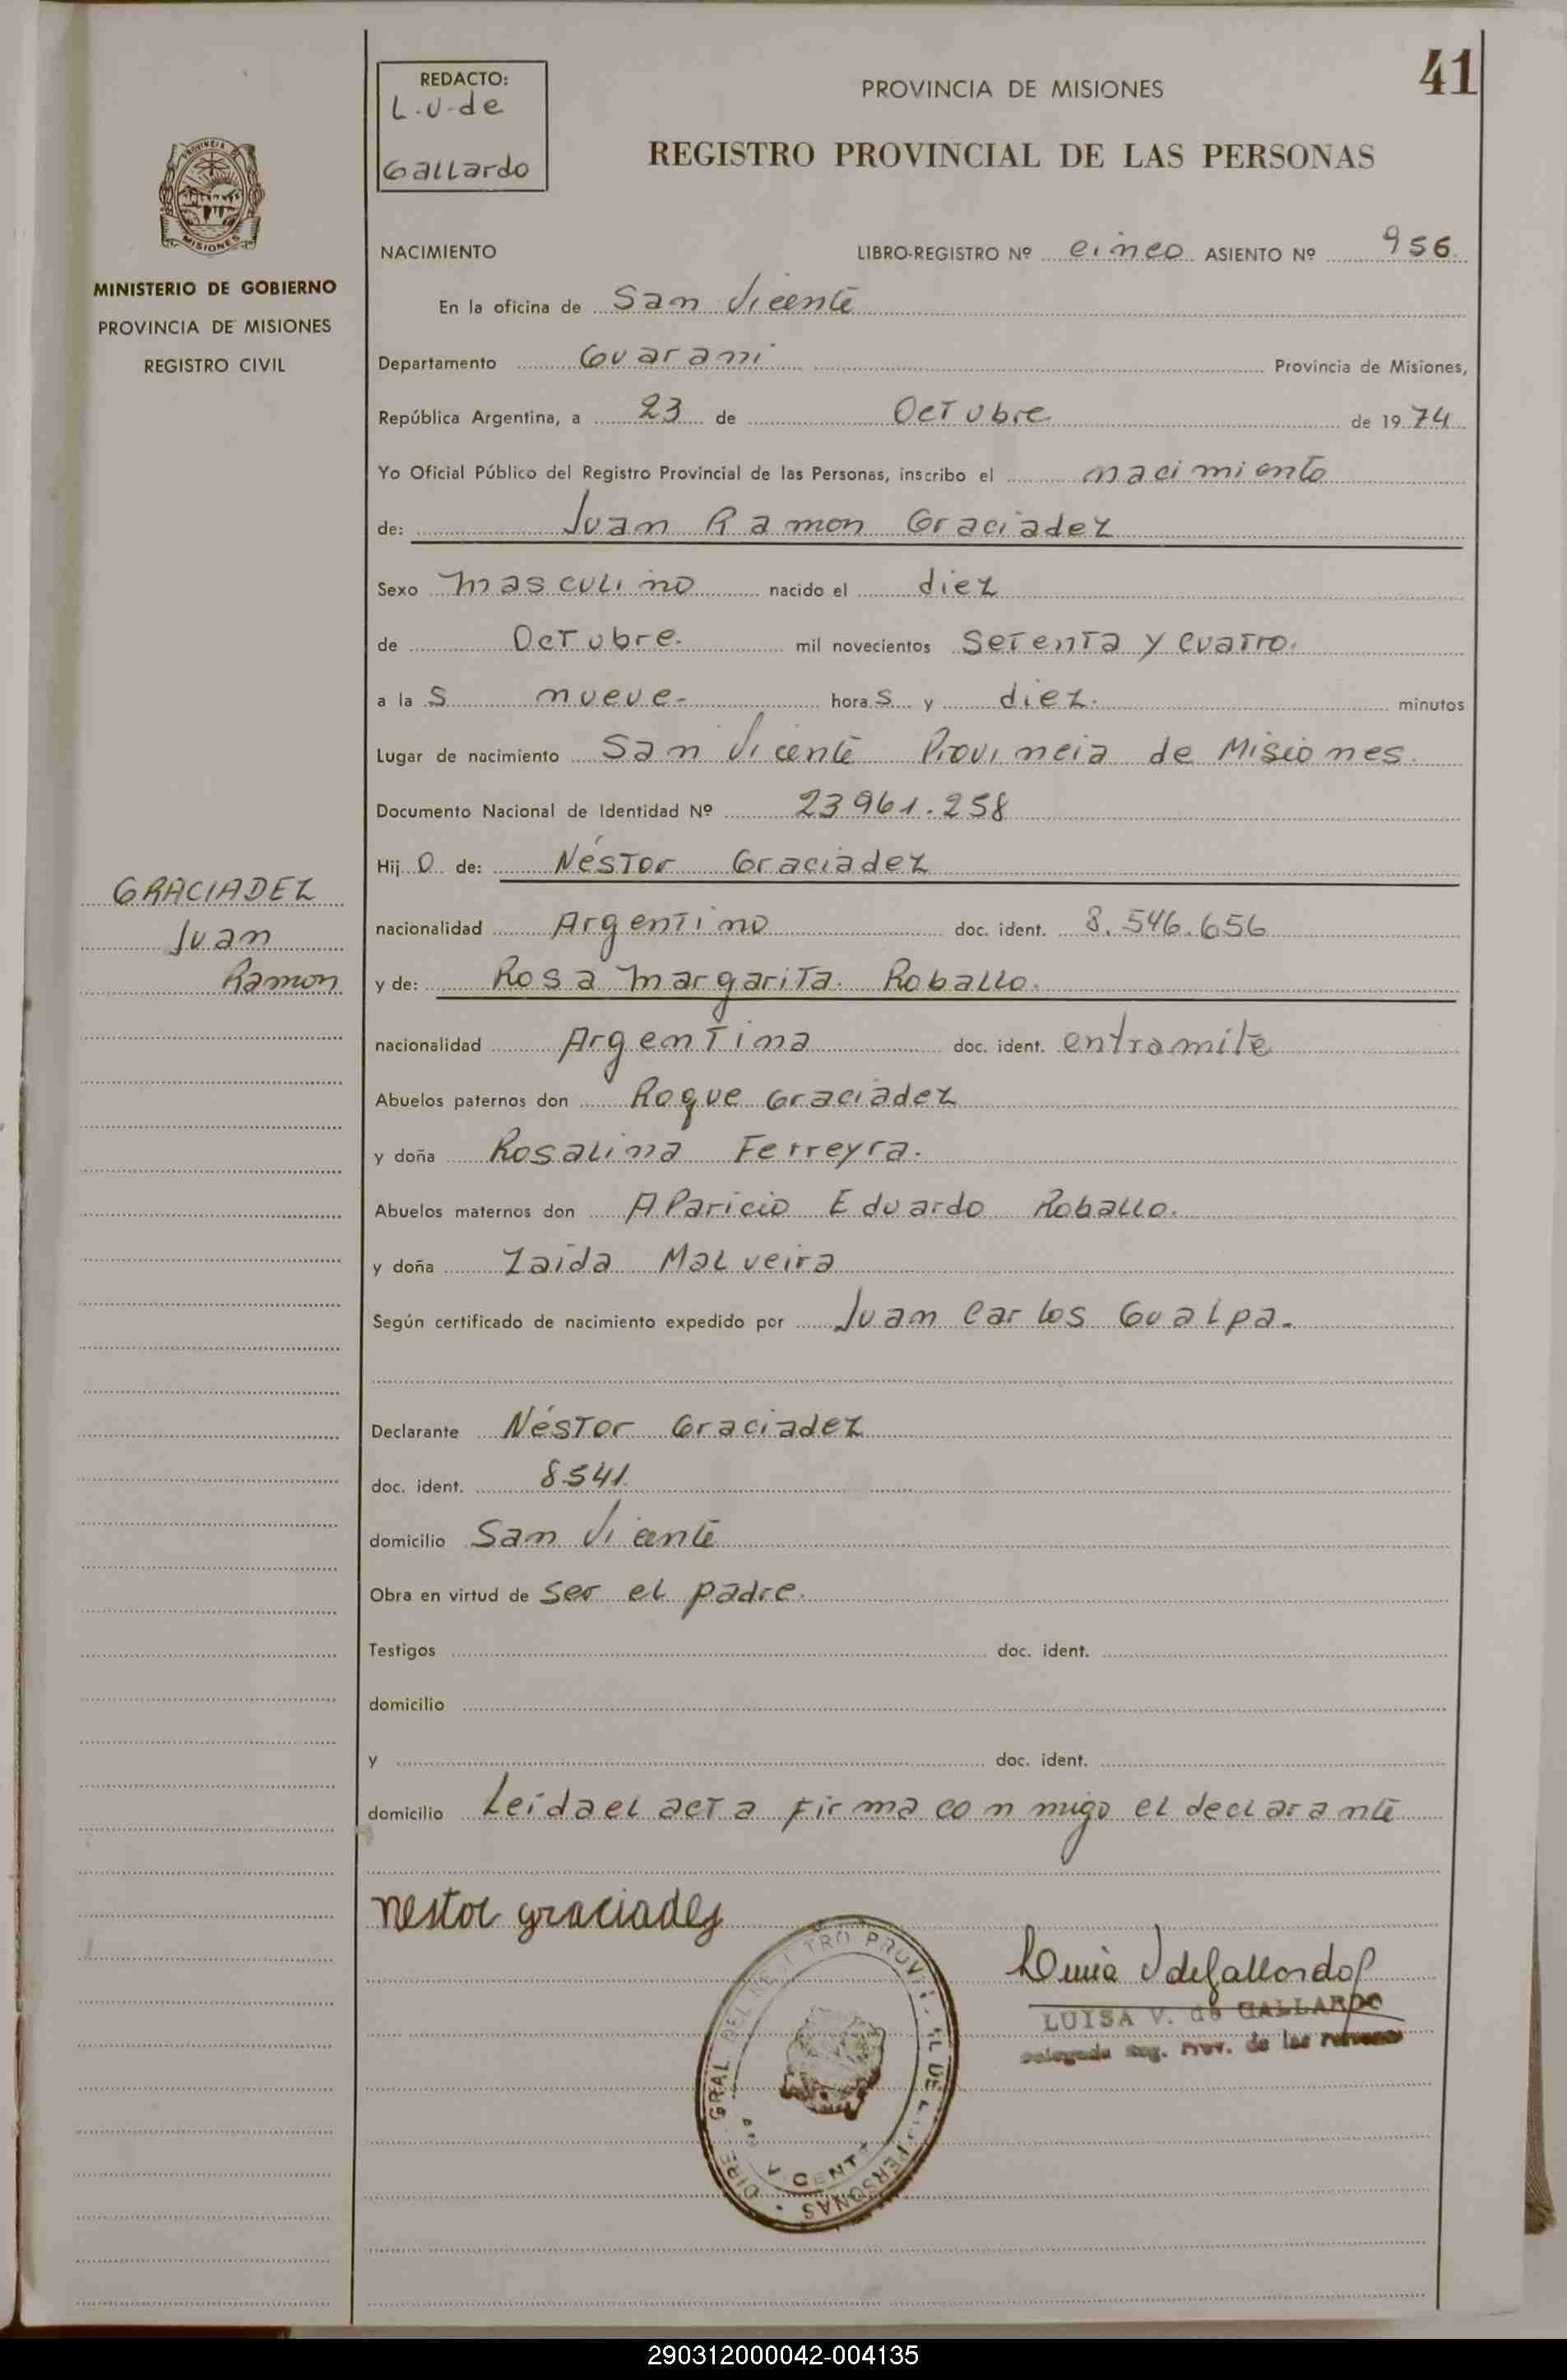 41
REDACTO:
L.V. de
Gallardo
PROVINCIA DE MISIONES
REGISTRO PROVINCIAL DE LAS PERSONAS
MISIONES
MINISTERIO DE GOBIERNO
PROVINCIA DE MISIONES
REGISTRO CIVIL
NACIMIENTO LIBRO-REGISTRO Nº cinco ASIENTO Nº 956
En la oficina de San Vicente
Departamento Guarani Provincia de Misiones,
República Argentina, a 23 de Octubre de 1974
Yo Oficial Público del Registro Provincial de las Personas, inscribo el nacimiento
de: Juan Ramon Graciadez
Sexo masculino nacido el diez
de Octubre. mil novecientos Setenta y cuatro.
a las nueve- horas y diez. minutos
Lugar de nacimiento San Vicente Provincia de Misiones.
Documento Nacional de Identidad Nº 23961.258
Hijo de: Néstor Graciadez
GRACIADEZ
Juan
Ramon
nacionalidad Argentino doc. ident. 8.546.656
y de: Rosa Margarita Roballo.
nacionalidad Argentina doc. ident. entramite
Abuelos paternos don Roque Graciadez
y doña Rosalina Ferreyra.
Abuelos maternos don Aparicio Eduardo Roballo.
y doña Zaida Malveira
Según certificado de nacimiento expedido por Juan Carlos Gualpa.
Declarante Néstor Graciadez
doc. ident. 8541.
domicilio San Vicente
Obra en virtud de ser el padre.
Testigos doc. ident.
domicilio
y doc. ident.
domicilio Leida el acta firma conmigo el declarante
nestor graciadez
LUISA V. de GALLARDO
Delegada Reg. Prov. de las Personas
290312000042-004135